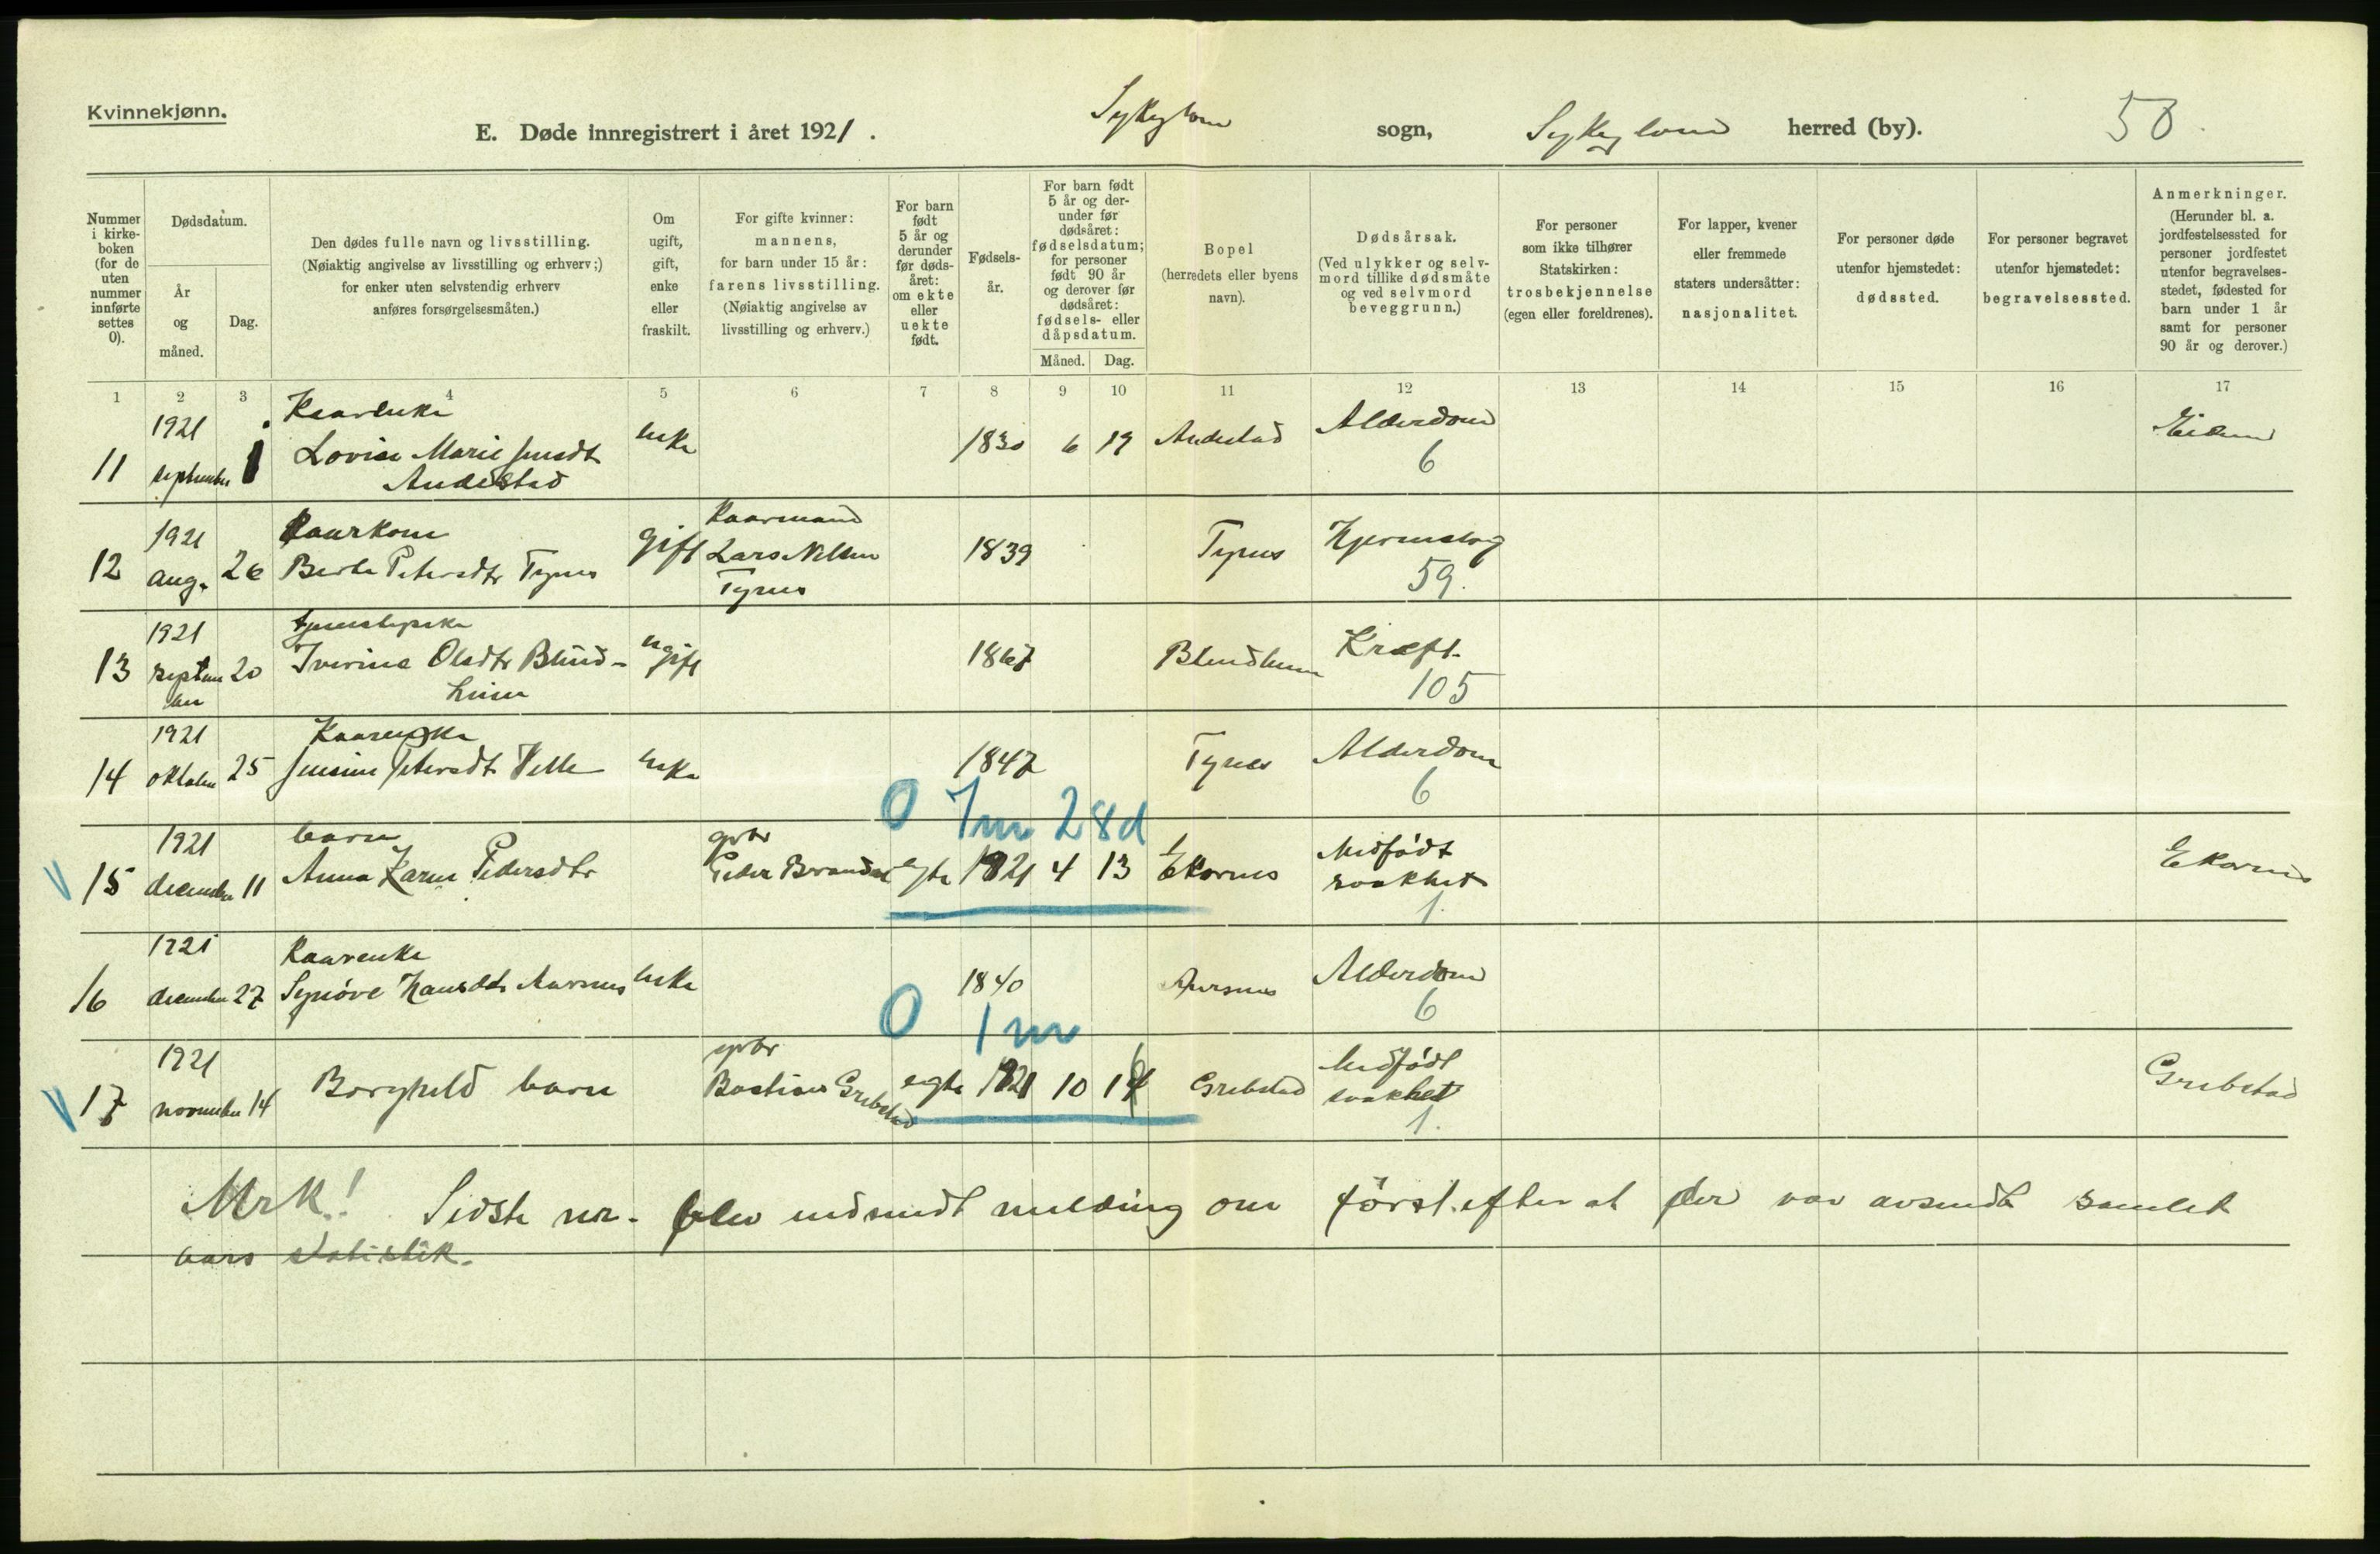 Kvinnekjønn.
E. Døde innregistrert i året 1921. Sykylven sogn, Sykylven herred (by). 58.
Nummer i kirkeboken (for de uten nummer innførte settes 0).
Dødsdatum.
År og måned.
Dag.
Den dødes fulle navn og livsstilling.
(Nøiaktig angivelse av livsstilling og erhverv;)
for enker uten selvstendig erhverv
anføres forsørgelsesmåten.)
Om ugift, gift, enke eller fraskilt.
For gifte kvinner:
mannens,
for barn under 15 år:
farens livsstilling.
(Nøiaktig angivelse av
livsstilling og erhverv.)
For barn født 5 år og derunder før dødsåret: om ekte eller uekte født.
Fødselsår.
For barn født 5 år og derunder før dødsåret: fødselsdatum; for personer født 90 år og derover før dødsåret: fødsels- eller dåpsdatum.
Måned. Dag.
Bopel
(herredets eller byens
navn).
Dødsårsak.
(Ved ulykker og selvmord tillike dødsmåte og ved selvmord beveggrunn.)
For personer
som ikke tilhører
Statskirken:
trosbekjennelse
(egen eller foreldrenes).
For lapper, kvener
eller fremmede
staters undersåtter:
nasjonalitet.
For personer døde
utenfor hjemstedet:
dødssted.
For personer begravet
utenfor hjemstedet:
begravelsessted.
Anmerkninger.
(Herunder bl. a. jordfestelsessted for personer jordfestet utenfor begravelsesstedet, fødested for barn under 1 år samt for personer 90 år og derover.)
1 2 3 4 5 6 7 8 9 10 11 12 13 14 15 16 17
1921 Kaarenke
11 september 1 Lovise Marie Jensdt enke 1830 6 19 Andestad Alderdom Eidem
Andestad 6
1921 Kaarkone Kaarmand
12 aug. 26 Berte Petersdtr Tynes gift Lars Nilsen 1839 Tynes Hjerneslag
Tynes 59.
1921 tjenestepike
13 septem 20 Iverina Olsdtr Blind- ugift 1867 Blindheim Kræft.
ber heim 105
1921 Kaarenke
14 oktober 25 Jensine Petersdt Velle enke 1847 Tynes Alderdom
6
0 7m 28d
1921 barn gbr Medfødt
V 15 december 11 Anna Karen Pedersdtr Peder egte 1921 4 13 Ekornes svakhet Ekornes
1.
1921 Kaarenke
16 december 27 Synøve Hansdtr Aursnes enke 1840 Aursnes Alderdom
6
0 1m
1921 gbr Medfødt
V 17 november 14 Borghild barn Bastian Grebstad egte 1921 10 14 6 Grebstad svakhet Grebstad
1.
Mrk! Sidste nr. blev indsendt melding om først efter at der var avsendt samlet
aars statistik.